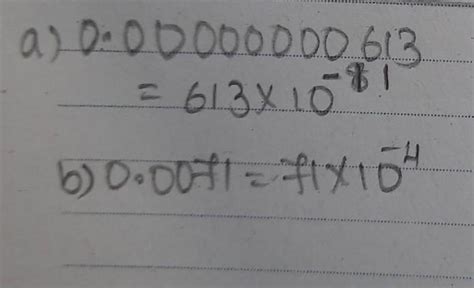 a) 0.00000000613
= 613 × 10⁻¹¹
b) 0.0071 = 71 × 10⁻⁴